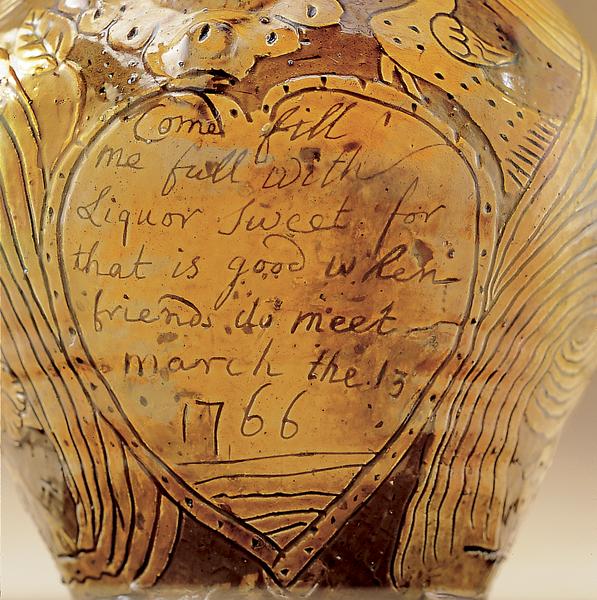 Come fill
me full with
Liquor sweet for
that is good when
friends do meet
march the 13
1766